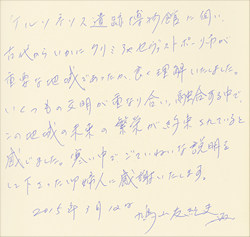 ケルソネソス遺跡博物館に伺い、
古代からいかにクリミヤセヴァストポーリ市が
重要な地域であったか、良く理解いたしました。
いくつもの文明が重なり合い、融合する中で
この地域の未来の繁栄が約束されていると
感じました。寒い中でていねいな説明を
して下さったご婦人に感謝いたします。
2015年3月12日
鳩山友紀夫